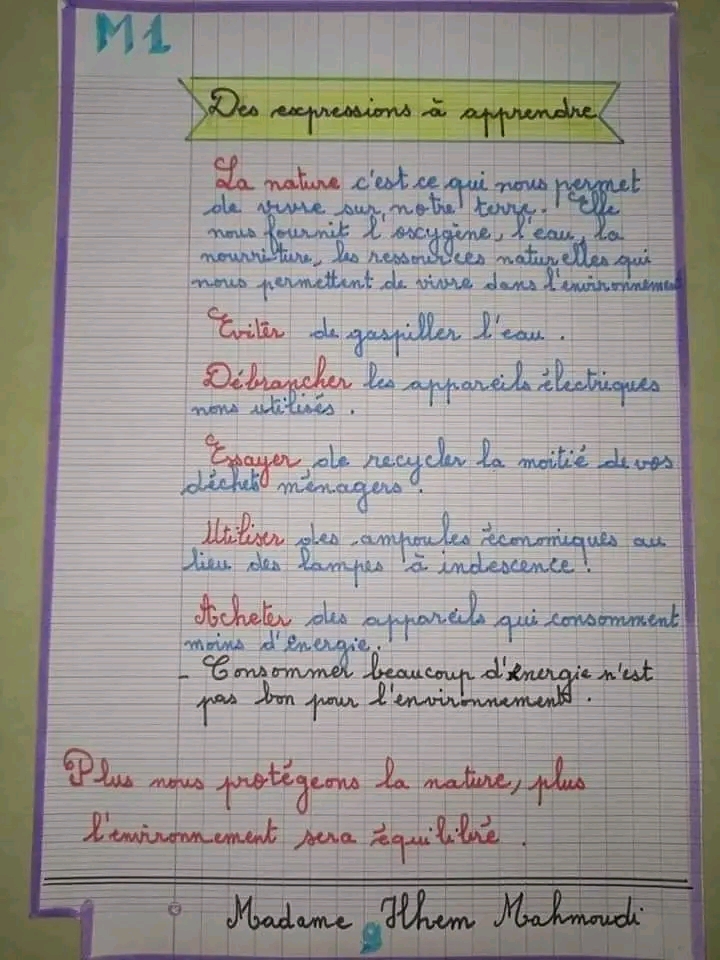 M1
Des expressions à apprendre
La nature c'est ce qui nous permet
de vivre sur notre terre. Elle
nous fournit l'oxygène, l'eau, la
nourriture, les ressources naturelles qui
nous permettent de vivre dans l'environnement
Eviter de gaspiller l'eau.
Débrancher les appareils électriques
nons utilisés.
Essayer de recycler la moitié de vos
déchet ménagers.
Utiliser des ampoules économiques au
lieu des lampes à indescence!
Acheter des appareils qui consomment
moins d'énergie.
- Consommer beaucoup d'énergie n'est
pas bon pour l'environnement.
Plus nous protégeons la nature, plus
l'environnement sera équilibré.
Madame Ilhem Mahmoudi